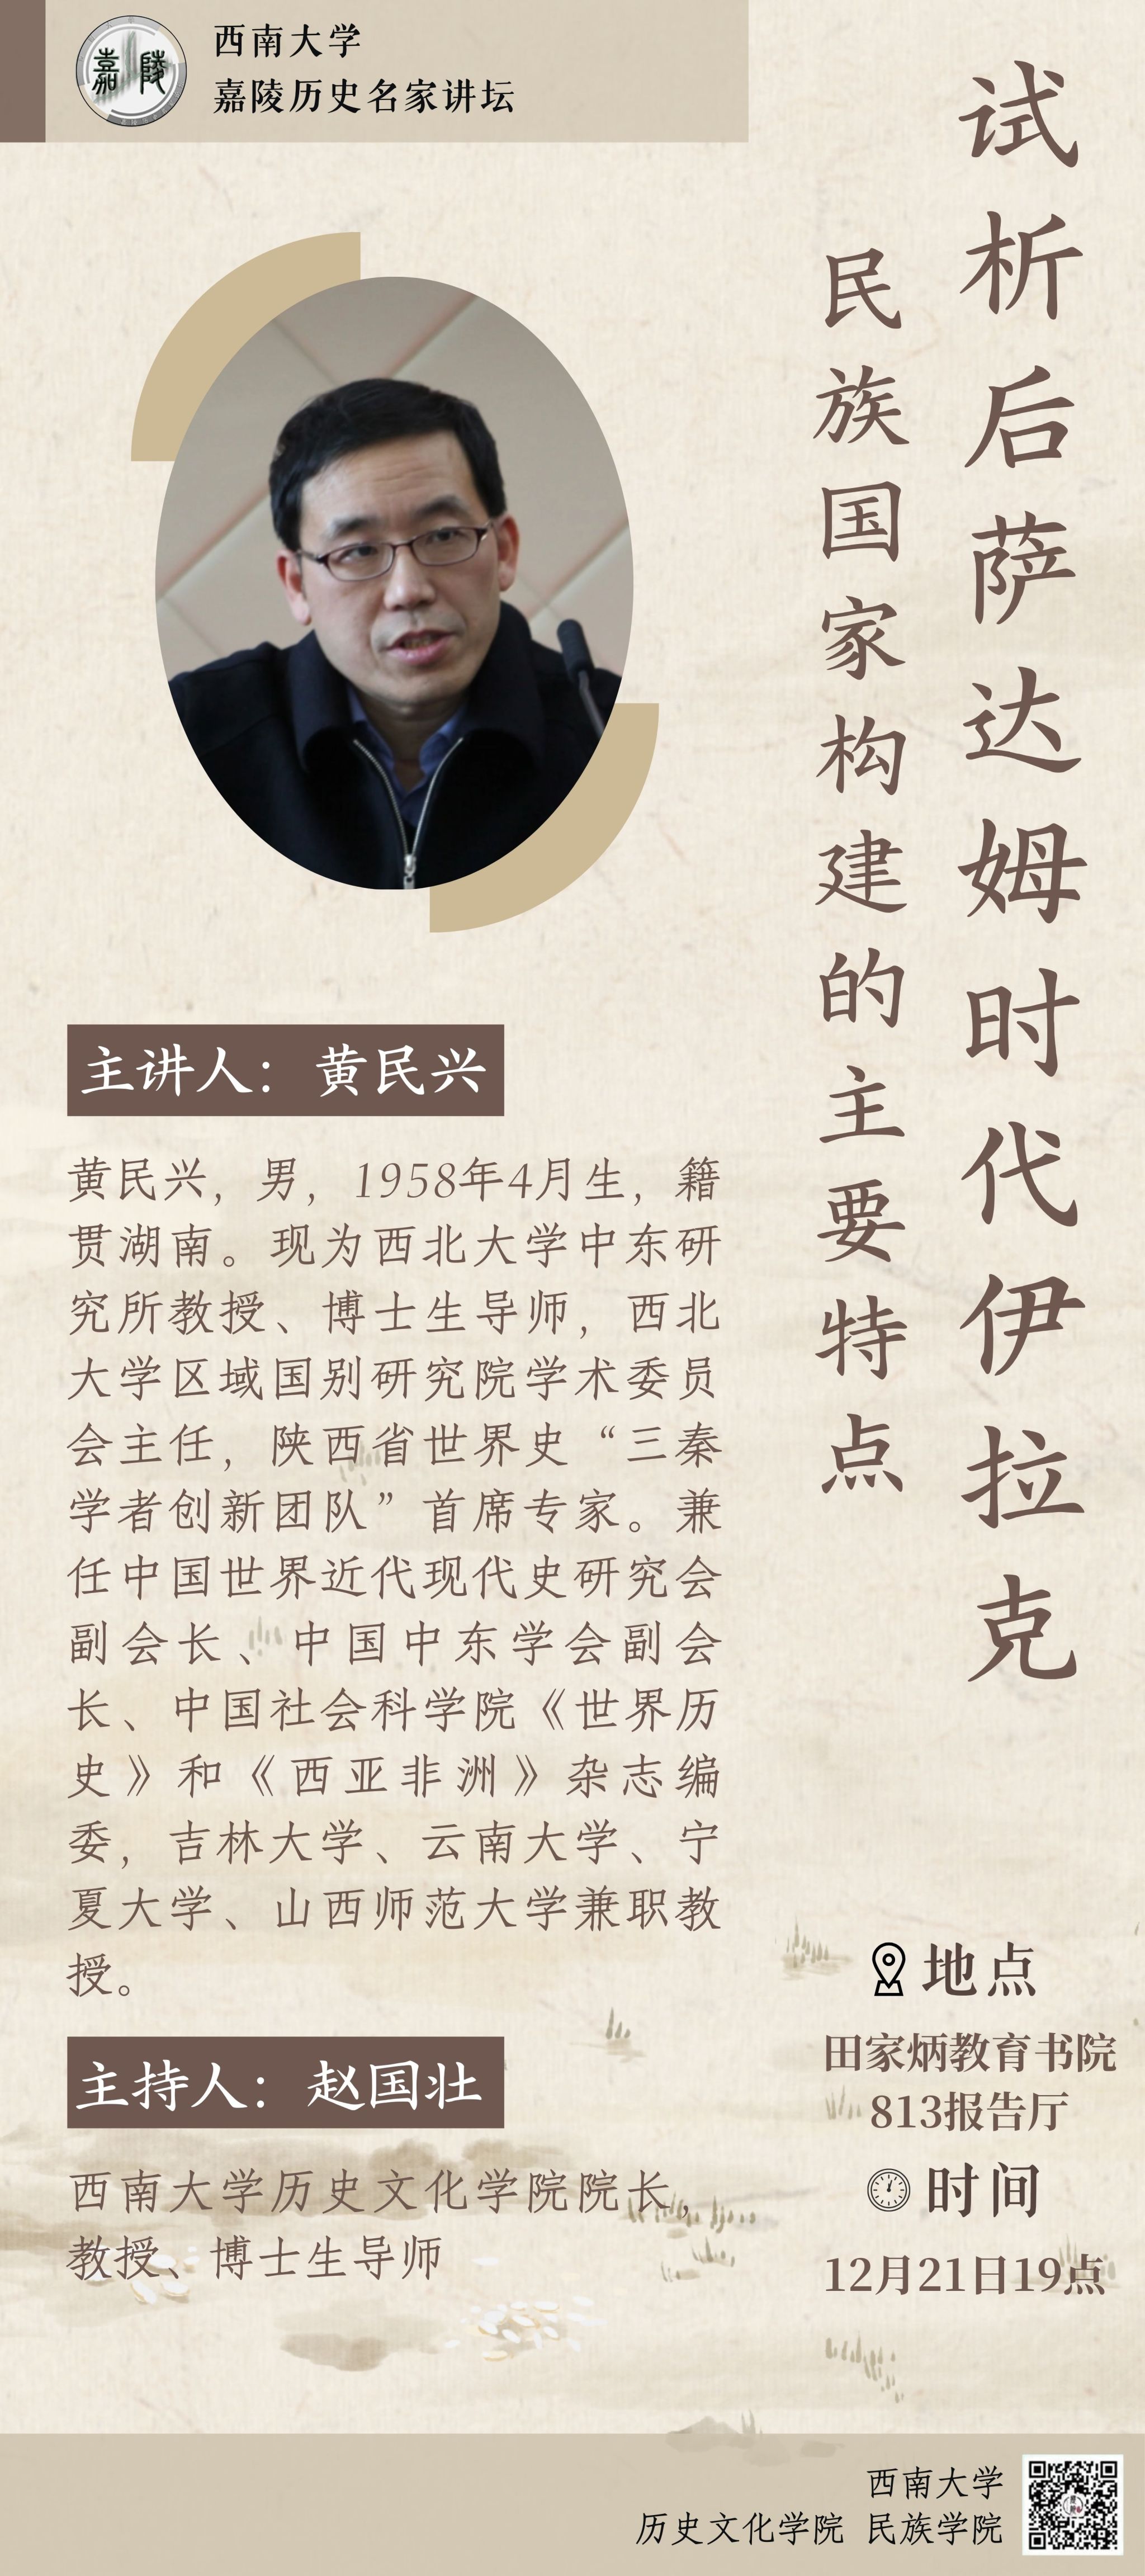 嘉陵
西南大学
嘉陵历史名家讲坛
试析后萨达姆时代伊拉克
民族国家构建的主要特点
主讲人：黄民兴
黄民兴，男，1958年4月生，籍
贯湖南。现为西北大学中东研
究所教授、博士生导师，西北
大学区域国别研究院学术委员
会主任，陕西省世界史“三秦
学者创新团队”首席专家。兼
任中国世界近代现代史研究会
副会长、中国中东学会副会
长、中国社会科学院《世界历
史》和《西亚非洲》杂志编
委，吉林大学、云南大学、宁
夏大学、山西师范大学兼职教
授。
主持人：赵国壮
西南大学历史文化学院院长，
教授、博士生导师
地点
田家炳教育书院
813报告厅
时间
12月21日19点
西南大学
历史文化学院 民族学院